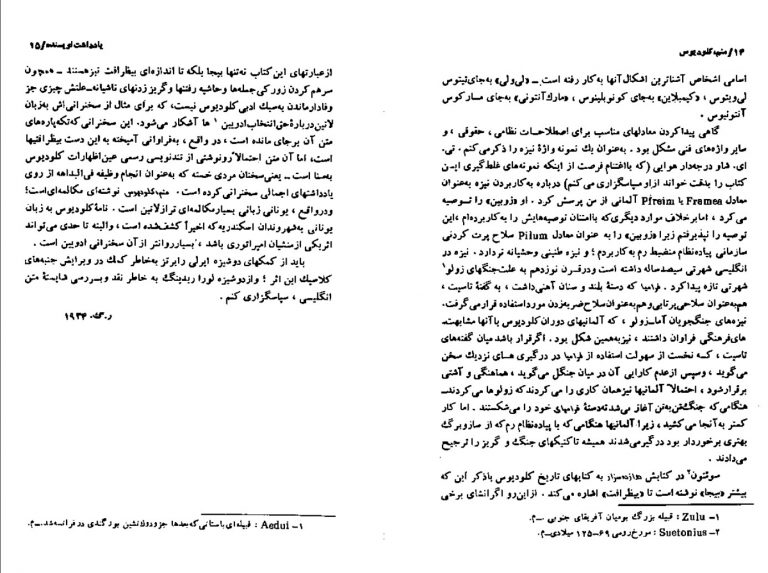 ۱۴/ منم کلودیوس
اسامی اشخاص آشناترین اشکال آنها به‌کار رفته است ــ «لی‌ولی» به‌جای تیتوس
لی‌ویتوس ، «کیمبلاین» به‌جای کونوبلینوس ، «مارك‌آنتونی» به‌جای مارکوس
آنتونیوس .
گاهی پیداکردن معادلهای مناسب برای اصطلاحات نظامی ، حقوقی ، و
سایر واژه‌های فنی مشکل بود . به‌عنوان یك نمونه واژهٔ نیزه را ذکرمی کنم . تی.
ای. شاو درجه‌دار هوایی (که بااغتنام فرصت از اینکه نمونه‌های غلط‌گیری ایـن
کتاب را بدقت خواند ازاو سپاسگزاری می کنم) درباره به‌کاربردن نیزه به‌عنوان
معادل Framea یا Pfreim آلمانی از من پرسش کرد . او «زوبین» را توصیه
می کرد ، امابرخلاف موارد دیگری‌که باامتنان توصیه‌هایش را به‌کاربرده‌ام ،این
توصیه را نپذیرفتم زیرا «زوبین» را به عنوان معادل Pilum سلاح پرت کردنی
سازمانی پیاده‌نظام منضبط رم به‌کاربردم ؛ و نیزه طنینی وحشیانه ندارد . نیزه در
انگلیسی شهرتی سیصدساله داشته است ودرقـرن نوزدهم به علت‌جنگهای زولو۱
شهرتی تازه پیداکرد . فرامیا که دستهٔ بلند و سنان آهنی‌داشت ، به گفتهٔ تاسیت ،
هم‌به‌عنوان سلاحی پرتابی‌وهم‌به‌عنوان سلاح ضربه‌زدن مورداستفاده قرارمی‌گرفت.
نیزه‌های جنگجویان آمـازولو ، که آلمانیهای دوران کلودیوس باآنها مشابهت‌ـ
های‌فرهنگی فراوان داشتند ، نیزبه‌همین شکل بود . اگرقرار باشد میان گفته‌های
تاسیت ، کـه نخست از سهولت استفاده از فرامیا در درگیری هـای نزدیك سخن
می‌گوید ، وسپس ازعدم کارایی آن در میان جنگل می‌گوید ، هماهنگی و آشتی
برقرارشود ، احتمالا" آلمانیها نیزهمان کاری را می کردندکه زولوها می‌کردند ـ
هنگامی‌که جنگ‌تن‌به‌تن آغاز می‌شد ته‌دستهٔ فرامیای خود را می‌شکستند . اما کار
کمتر به‌آنجا می‌کشید ، زیـرا آلمانیها هنگامی‌که با پیاده‌نظام رم‌که از سازوبرگ
بهتری برخوردار بود درگیرمی‌شدند همیشه تاکتیکهای جنگ و گریز را ترجیح
می‌دادند .
سوئتون۲ در کتابش به کتابهای تاریخ کلودیوس باذکر این که
بیشتر «بیجا» نوشته است تا «بیظرافت» اشاره می‌کند . ازاین‌رو اگرانشای برخی
۱ــ Zulu : قبیله بزرگ بومیان آفریقای جنوبی ــ م.
۲ــ Suetonius : مورخ‌رومی ۶۹ــ۱۲۵ میلادی ــ م.
یادداشت نویسنده/۱۵
ازعبارتهای این کتاب نه‌تنها بیجا بلکه تا اندازه‌ای بیظرافت نیزهستند ــ همچون
سرهم کردن زورکی‌جمله‌ها وحاشیه رفتنها وگریز زدنهای ناشیانه ــ علتش چیزی جز
وفادارماندن به‌سبك ادبی‌کلودیوس نیست، که برای مثال از سخنرانی‌اش به‌زبان
لاتین دربارهٔ حق‌انتخاب ادویین ۱ ها آشکار می‌شود. این سخنرانی که‌تکه‌پاره‌های
متن آن برجای مانده است ، در واقع ، به‌فراوانی آمیخته به این دست بیظرافتیها
است، اما آن متن احتمالا" رونوشتی از تندنویسی رسمی عین‌اظهارات کلودیوس
به‌سنا است ــ یعنی‌سخنان مردی خسته که به‌عنوان انجام وظیفه فی‌البداهه از روی
یادداشتهای اجمالی سخنرانی کرده است . منم‌کلودیوس نوشته‌ای مکالمه‌ای‌است؛
ودرواقع ، یونانی زبانی بسیارمکالمه‌ای ترازلاتین است . نامهٔ‌کلودیوس به زبان
یونانی به‌شهروندان اسکندریه‌که اخیراً کشف‌شده است ، والبته تا حدی می‌تواند
اثریکی ازمنشیان امپراتوری باشد ،بسیارروانتر از آن سخنرانی ادویین است .
باید از کمکهای دوشیزه ایرلی رابرتز به‌خاطر کمك در ویرایش جنبه‌های
کلاسیك این اثر ؛ وازدوشیزه لورا ریدینگ به خاطر نقد وبررسی شایستهٔ متن
انگلیسی ، سپاسگزاری کنم .
ر. گ. ۱۹۳۴
۱ــ Aedui : قبیله‌ای‌باستانی‌که‌بعدها جزودوك‌نشین بورگندی در فرانسه‌شد.ــ م.